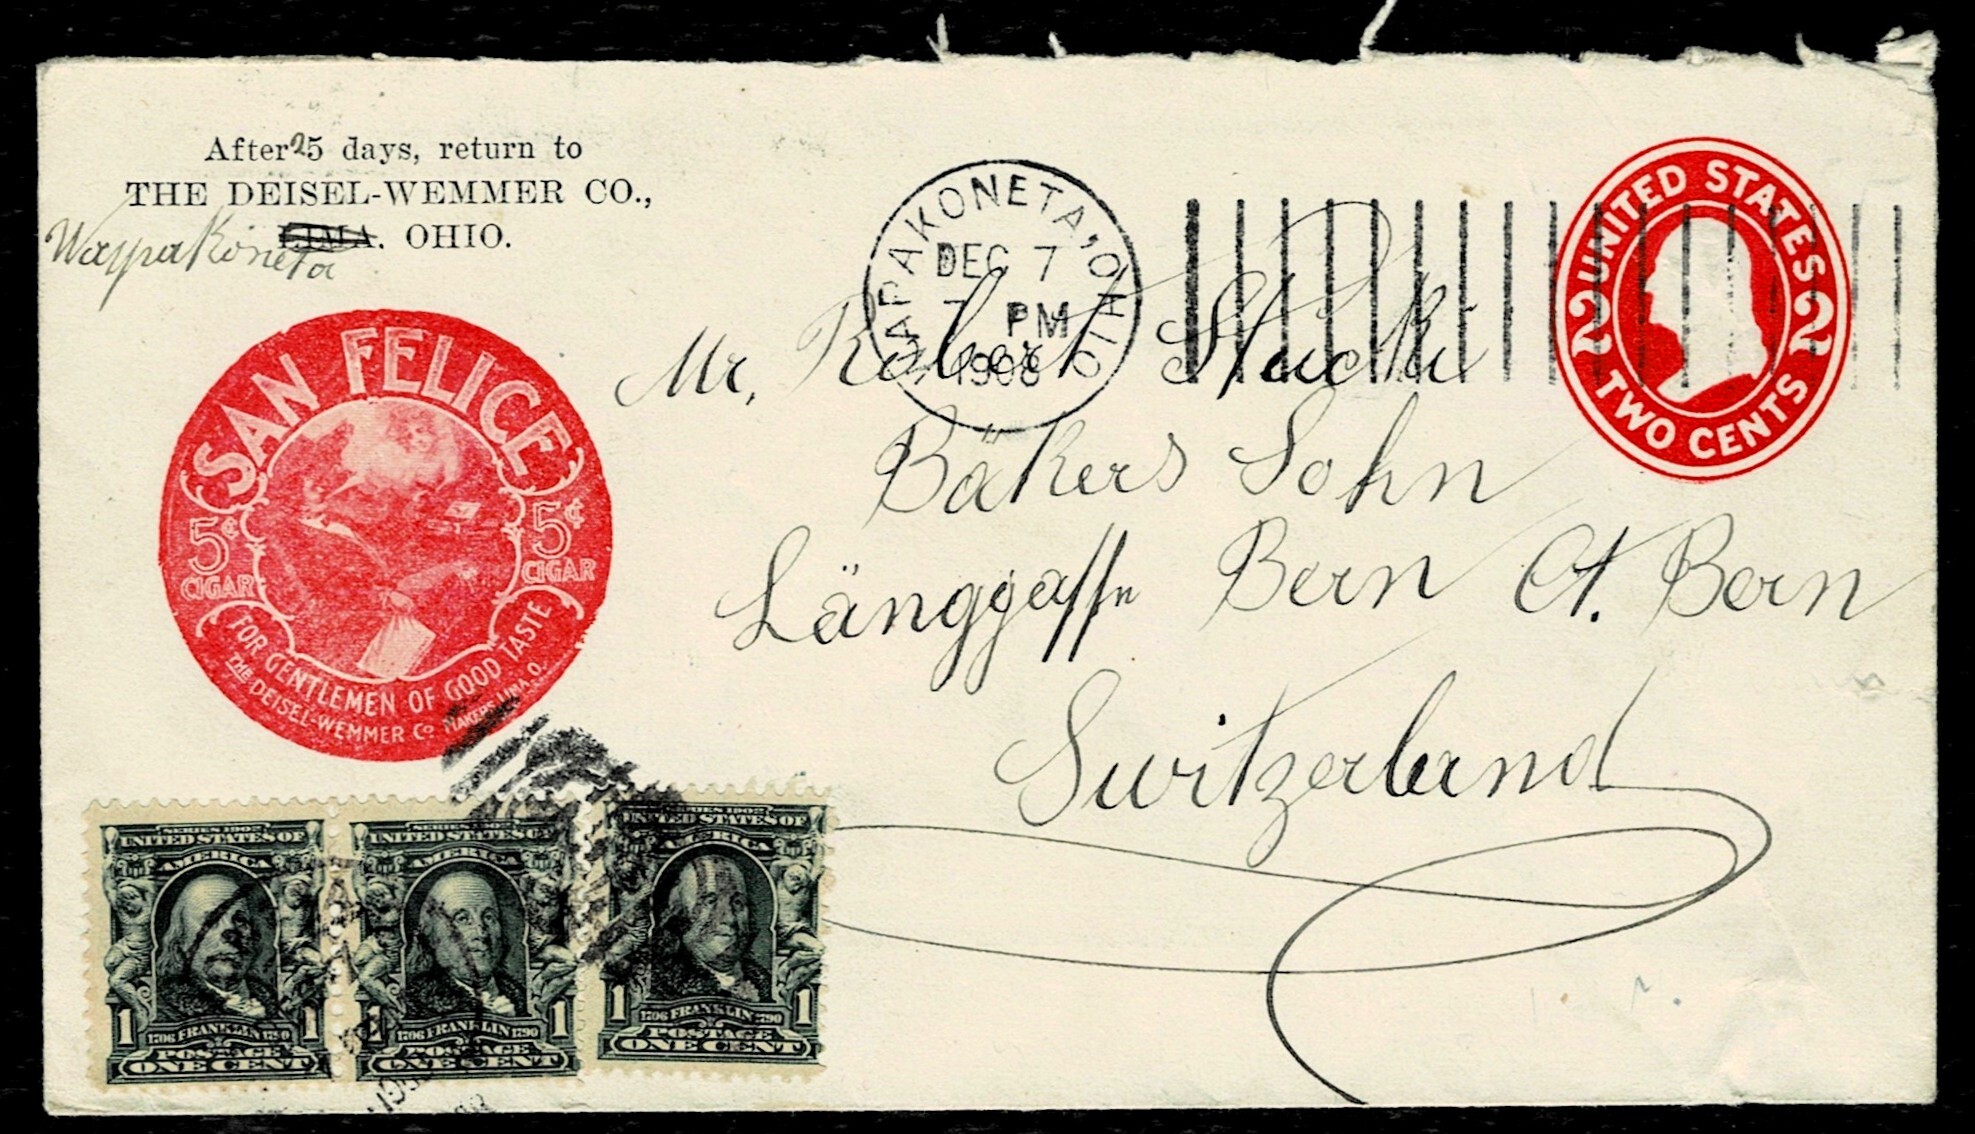 After 25 days, return to
THE DEISEL-WEMMER CO.,
LIMA. OHIO.
Waypakoneta
SAN FELICE
5¢ CIGAR
5¢ CIGAR
FOR GENTLEMEN OF GOOD TASTE
THE DEISEL-WEMMER Co MAKERS LIMA, O.
WAPAKONETA, OHIO
DEC 7
7 PM
1908
UNITED STATES
2 2
TWO CENTS
Mr. Robert Stucki
Bäkers Sohn
Länggasse Bern Ct. Bern
Switzerland
SERIES 1902
UNITED STATES OF
AMERICA
1 1
1706 FRANKLIN 1790
POSTAGE
ONE CENT
SERIES 1902
UNITED STATES OF
AMERICA
1 1
1706 FRANKLIN 1790
POSTAGE
ONE CENT
SERIES 1902
UNITED STATES OF
AMERICA
1 1
1706 FRANKLIN 1790
POSTAGE
ONE CENT